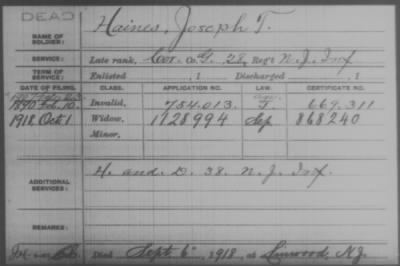 DEAD
NAME OF SOLDIER: Haines, Joseph T.
SERVICE: Late rank, Cor. Co. G, 28, Reg't N.J. Inf
TERM OF SERVICE: Enlisted , 1 Discharged , 1
DATE OF FILING. CLASS. APPLICATION NO. LAW. CERTIFICATE NO.
1890 Feb. 10. Invalid, 754.013. J. 669.311
1918 Oct 1 Widow, 1128994 Sep 868240
Minor,
ADDITIONAL SERVICES: H. and D. 38. N.J. Inf.
REMARKS:
Died Sept 6", 1918, at Linwood, N.J.